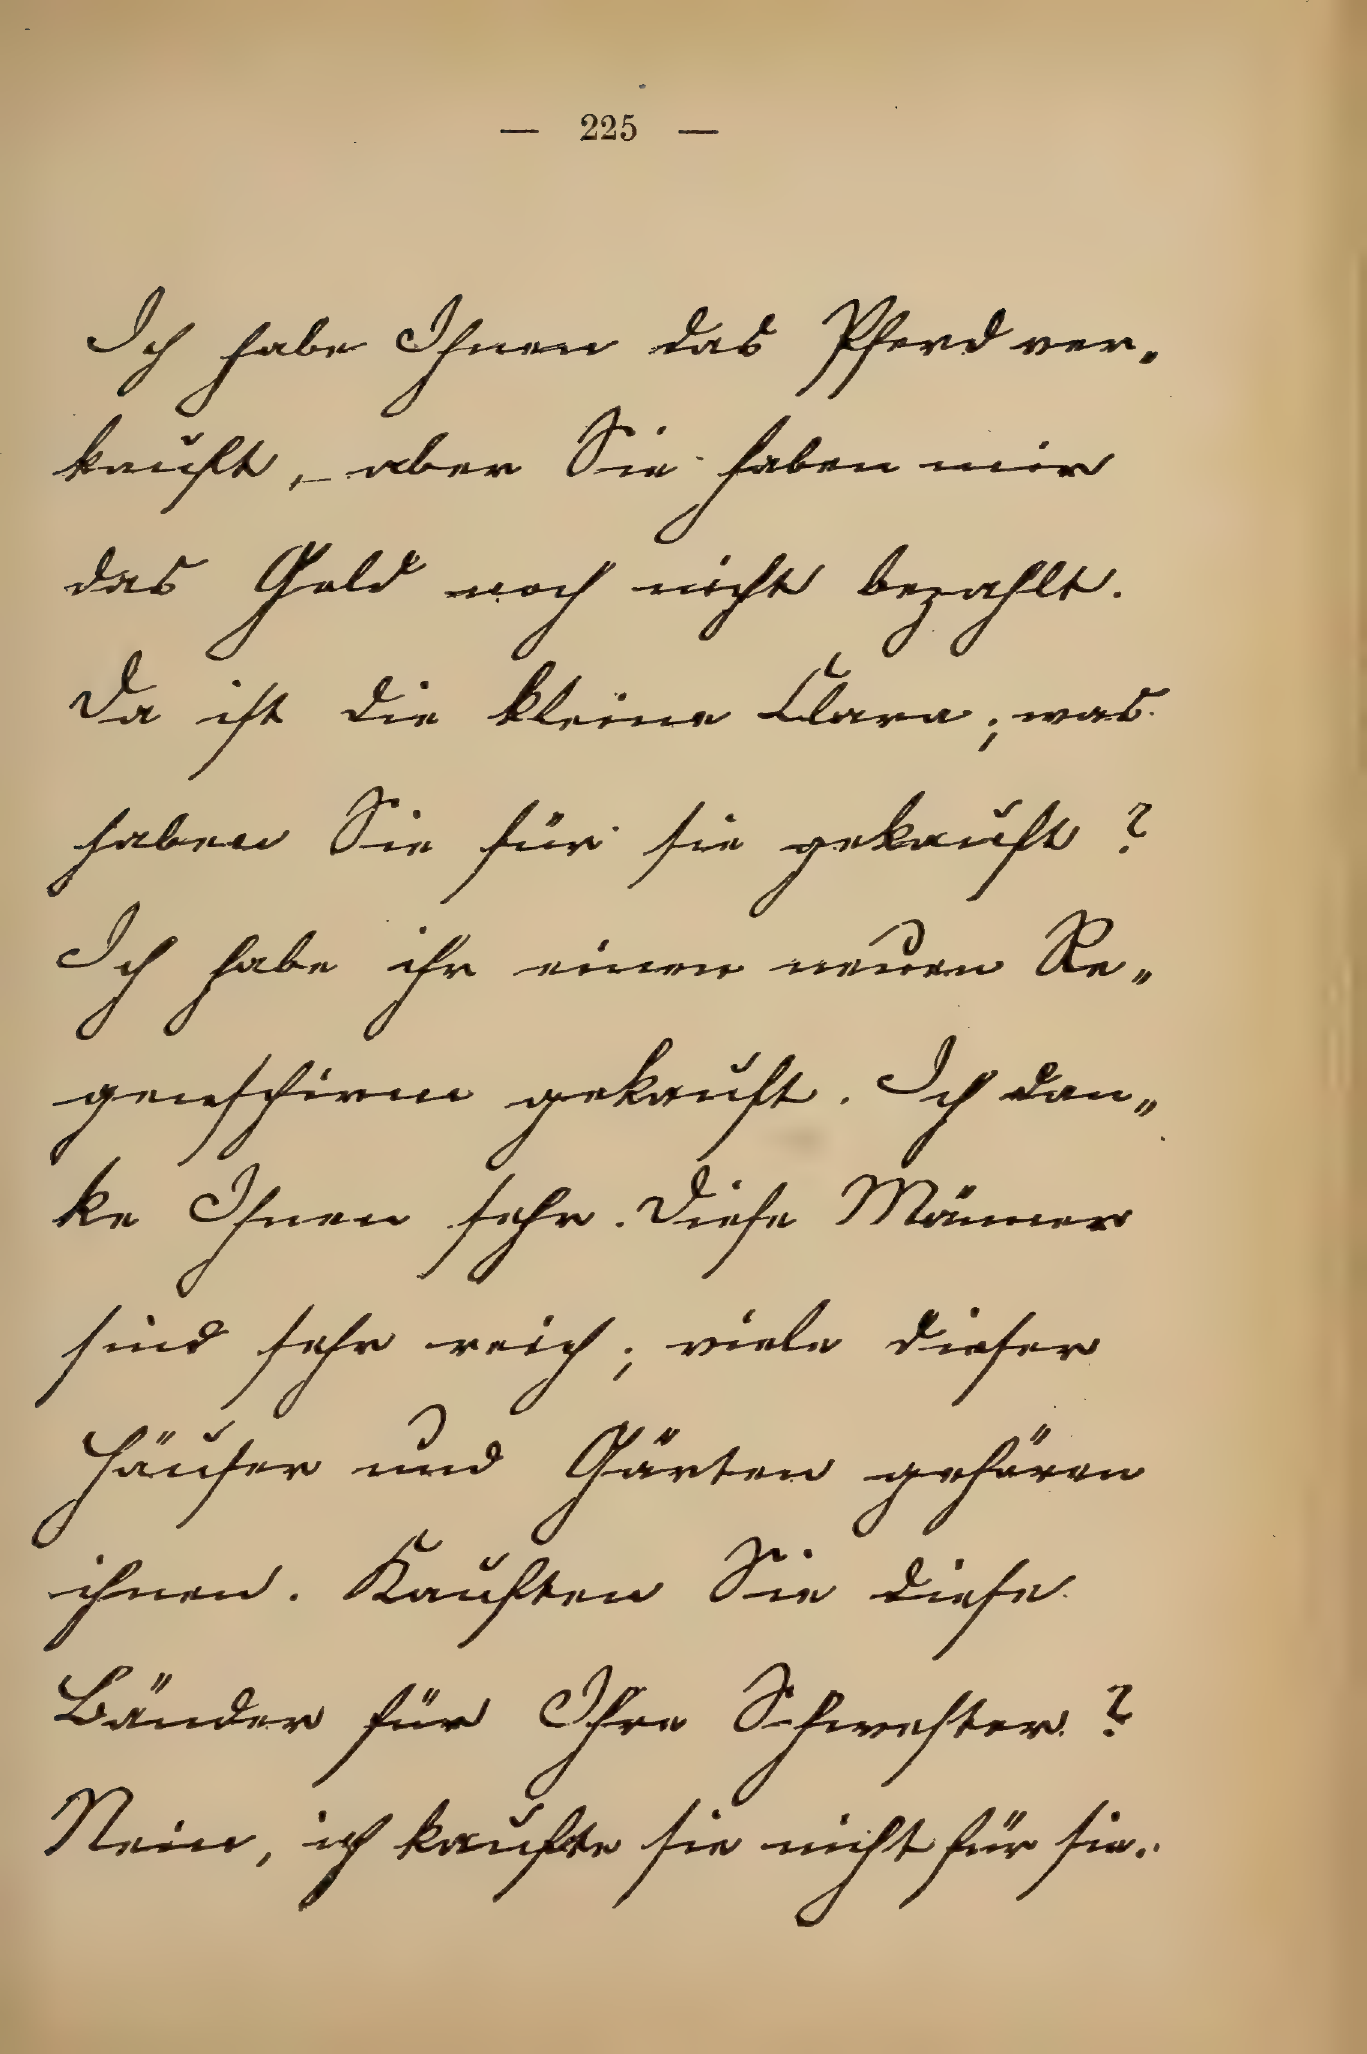 — 225 —
Ich habe Ihnen das Pferd ver-
kauft, aber Sie haben mir
das Geld noch nicht bezahlt.
Da ist die kleine Clara; was
haben Sie für sie gekauft?
Ich habe ihr einen neuen Re-
genschirm gekauft. Ich dan-
ke Ihnen sehr. Diese Männer
sind sehr reich; viele dieser
Häuser und Gärten gehören
ihnen. Kauften Sie diese
Bänder für Ihre Schwester?
Nein, ich kaufte sie nicht für sie.